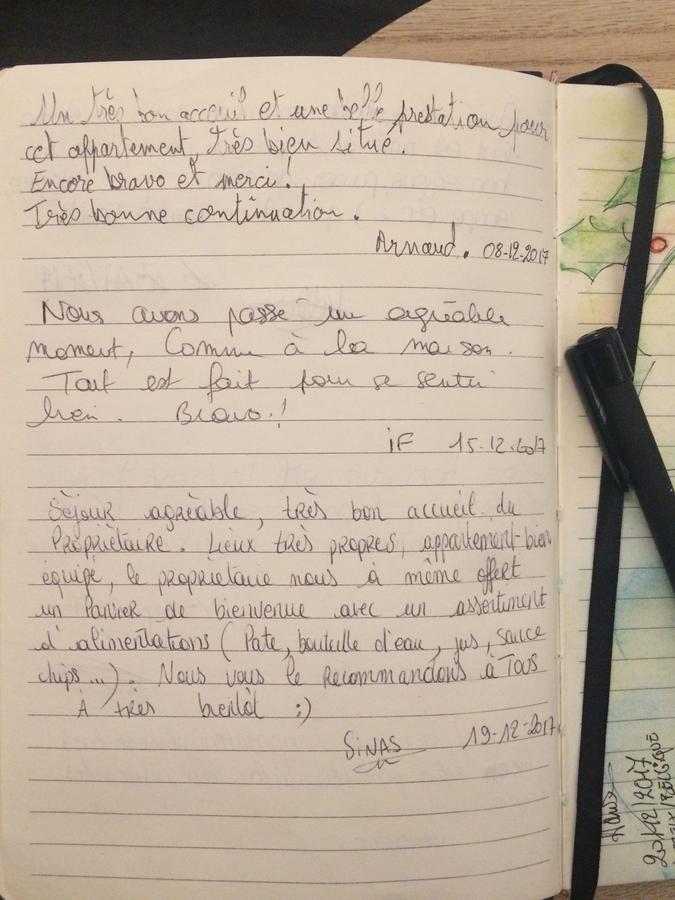 Un très bon accueil et une belle prestation pour
cet appartement, très bien situé.
Encore bravo et merci.
Très bonne continuation.
Arnaud. 08-12-2017
Nous avons passé un agréable
moment, Comme à la maison.
Tout est fait pour se sentir
bien. Bravo!
iF 15.12.2017
Séjour agréable, très bon accueil du
Propriétaire. Lieux très propres, appartement bien
équipé, le propriétaire nous à même offert
un Panier de bienvenue avec un assortiment
d'alimentations (Pate, bouteille d'eau, jus, sauce
chips...). Nous vous le Recommandons à Tous
À très bientôt :)
SiNAS 19-12-2017
20/12/2017
BELGIQUE